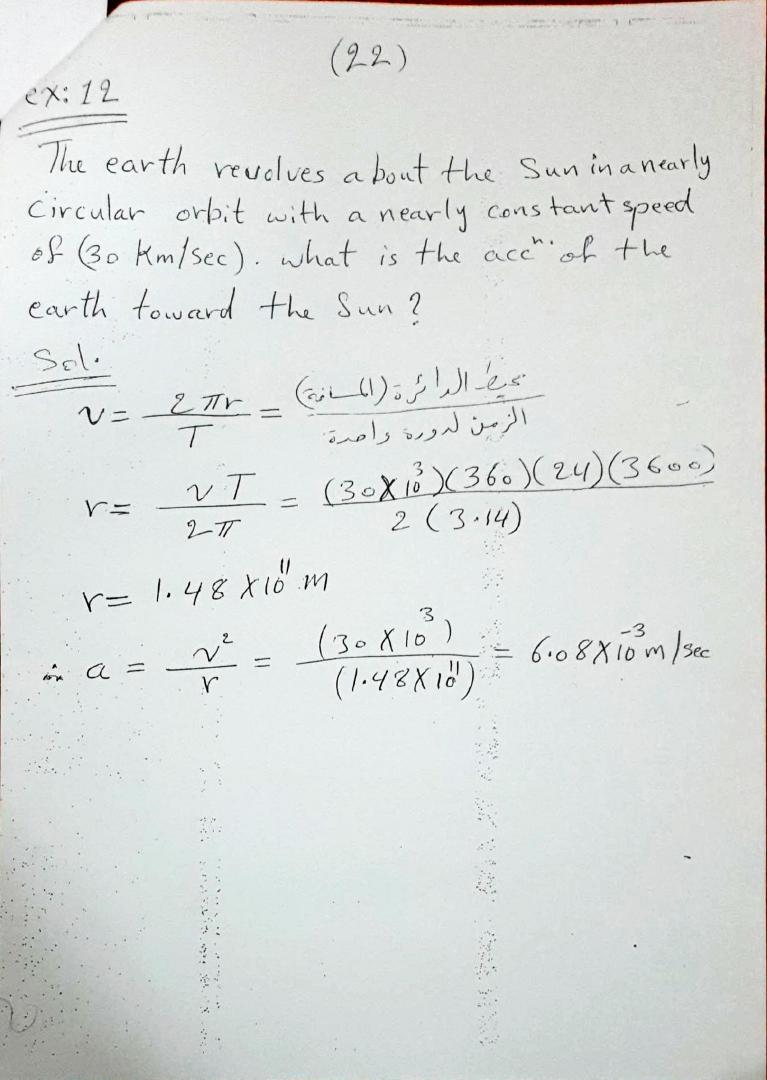 (22)
ex: 12
The earth revolves about the Sun in a nearly
Circular orbit with a nearly constant speed
of (30 Km/sec). what is the accⁿ. of the
earth toward the Sun?
Sol.
v = 2πr / T = محيط الدائرة (المسافة) / الزمن لدورة واحدة
r = vT / 2π = (30X10³)(360)(24)(3600) / 2(3.14)
r = 1.48 X10¹¹ m
∴ a = v² / r = (30X10³) / (1.48X10¹¹) = 6.08X10⁻³ m/sec